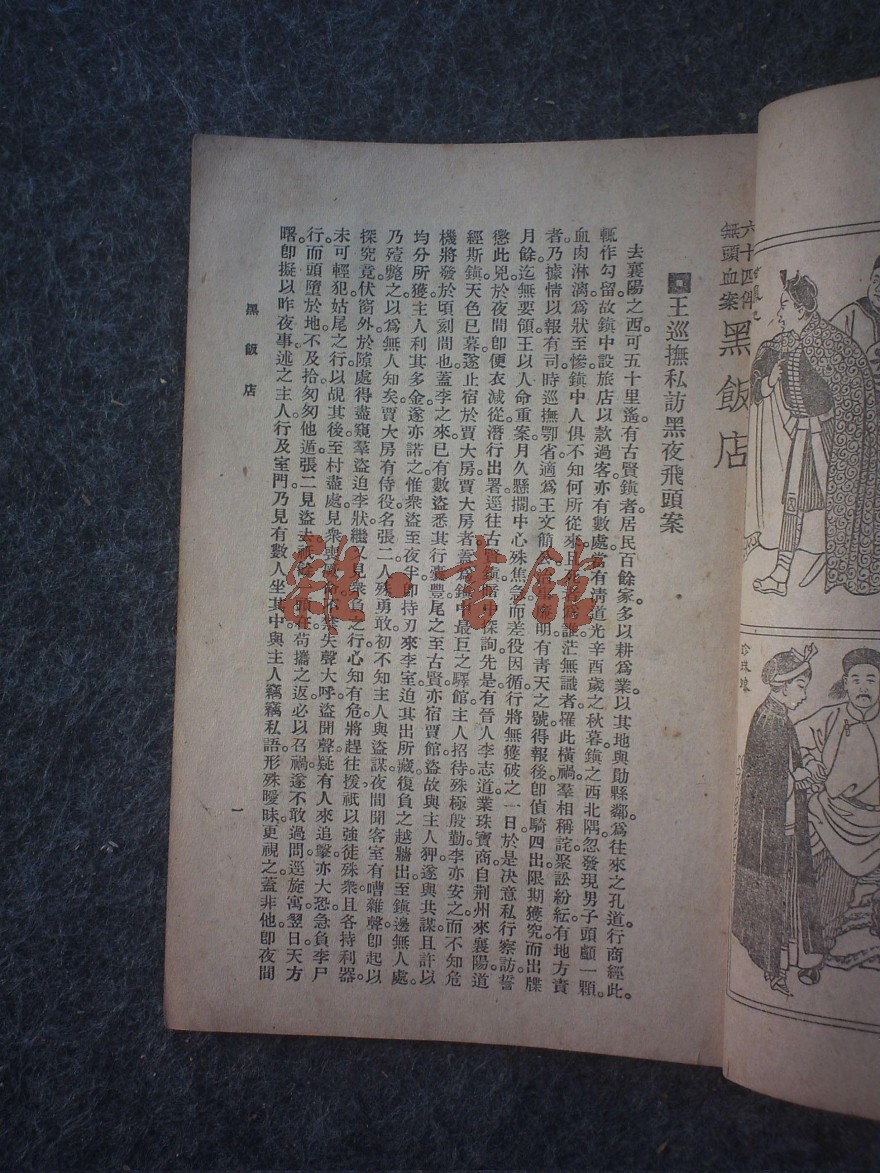 六十四件
無頭血案
黑飯店
珍珠
王巡撫私訪黑夜飛頭案
去襄陽之西。可五十里遙。有古賢鎮者。居民百餘家。多以耕爲業。以其地與勛縣鄰。爲往來之孔道。行商經此。
輒作勾留。故鎮中設旅店以款過客。亦有數處。當有淸道光辛酉歲之秋暮。鎮之西北隅。忽發現男子頭顱一顆。
血肉淋漓。爲狀至慘。鎮中人俱不知何所從來。且爲誰。茫無識者。罹此橫禍。羣相稱詫。聚訟紛紜。有地方責
者。乃據情以報有司。時巡撫鄂省。適爲王文簡廉明有靑天之號。得報後。卽偵騎四出。限期獲究。而出牒
月餘。迄無要領。王以人命重案。月久懸擱。中心殊焦急。而差役因循。行將無獲破之一日。於是決意私行察訪。誓
懲此兇。於夜間卽便衣減從。潛行出署。逕往古賢鎮探詢。先是有晉人李志道。業珠寶商。自荆州來襄陽。道
經斯鎮。天色已暮。遂止宿於賈大房。賈大房者。蓋爲鎮中最巨之驛館。主人招待殊極殷勤。李亦安之。而不知危
機將發於頃刻間也。蓋李之來。已有數盜悉其行橐豐。尾之至古賢。亦宿賈館。盜故與主人狎。遂與共謀。且許以
均分所獲。主人利其多金。遂亦諾之。惟衆盜至夜半。卽持刃來李室。迫其出所藏。復負之越牆出。至鎮邊無人處。
乃殪斃之。以爲無人知矣。賈大房有侍役名張二。人殊勇敢。初不知主人與盜謀。夜間聞客室有嘈雜聲。卽起以
探究竟。伏窗外。於隙處得盡窺羣盜迫李狀。繼又見衆負之行。心知有危。將趕往援。祇以強徒殊衆。且各持利器。
未可輕犯。姑尾之行。以覘其後。至村盡處。見衆喪失聲大呼。盜聞聲。疑有人來追擊。亦大恐。急負李尸
行。而頭墮於地。不及拾。匆匆他遁。張二見盜去頭在。苟攜之返。必以召禍。遂不敢過問。逕旋寓。翌日天方
曙。卽擬以昨夜事述之主人。行及室門。乃見有數人坐其中。與主人竊竊私語。形殊曖昧。更視之。蓋非他。卽夜間
黑飯店
一
雜·書館